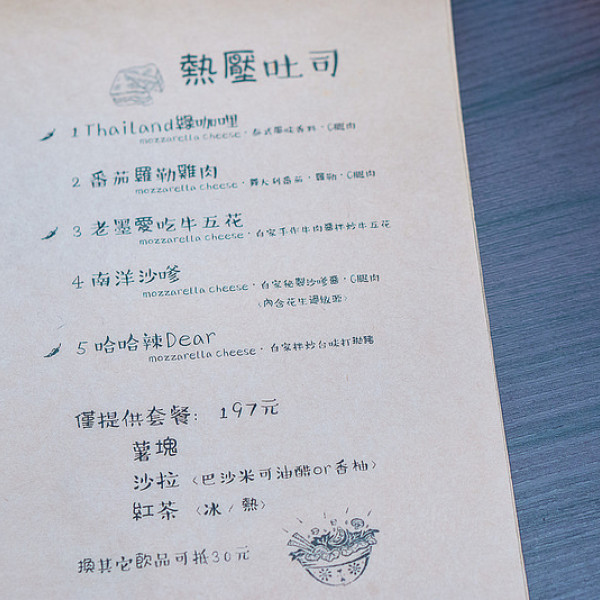 熱壓吐司
1 Thailand綠咖哩
mozzarella cheese‧泰式風味香料‧G腿肉
2 番茄羅勒雞肉
mozzarella cheese‧義大利番茄‧羅勒‧G腿肉
3 老墨愛吃牛五花
mozzarella cheese‧自家手作牛肉醬拌炒牛五花
4 南洋沙嗲
mozzarella cheese‧自家秘製沙嗲醬‧G腿肉
〈內含花生過敏源〉
5 哈哈辣Dear
mozzarella cheese‧自家拌炒台味打拋豬
僅提供套餐: 197元
薯塊
沙拉〈巴沙米可油醋or香柚〉
紅茶〈冰/熱〉
換其它飲品可抵30元